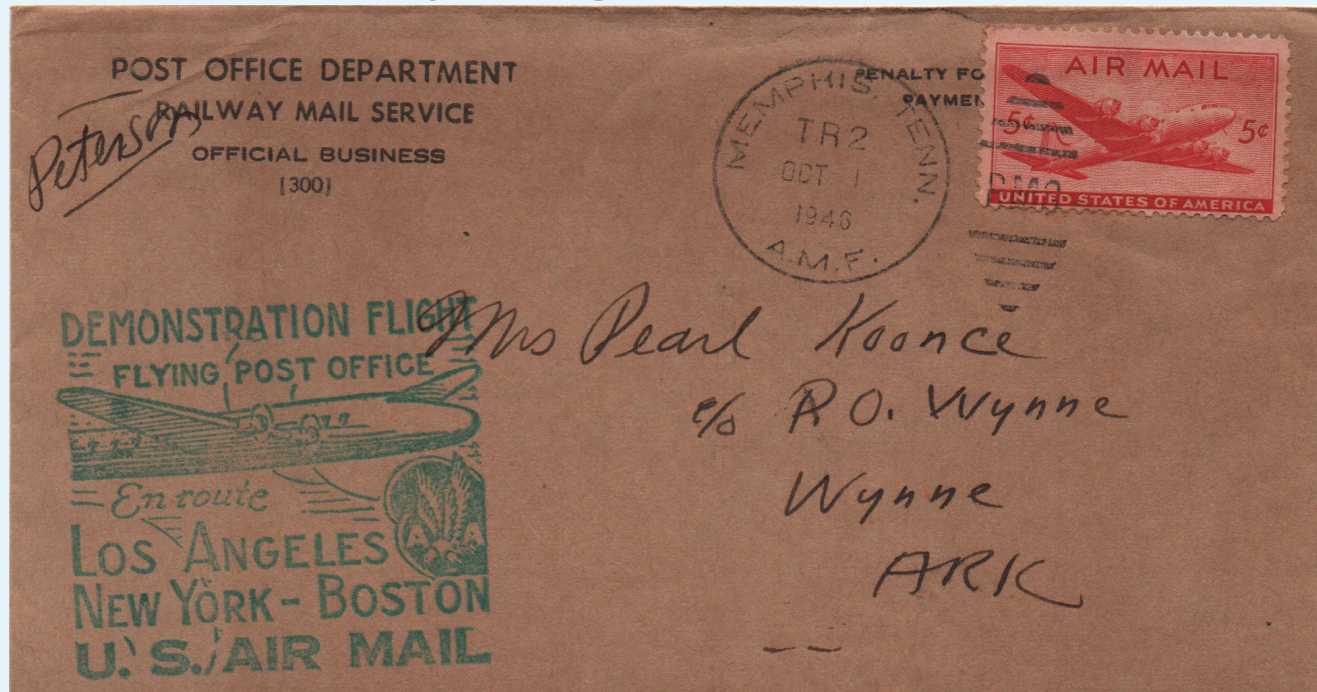 POST OFFICE DEPARTMENT
RAILWAY MAIL SERVICE
OFFICIAL BUSINESS
[300]
Peterson
PENALTY FO
PAYMEN
MEMPHIS, TENN.
TR2
OCT 1
1946
A.M.F.
AIR MAIL
5¢ 5¢
UNITED STATES OF AMERICA
DEMONSTRATION FLIGHT
FLYING POST OFFICE
En route
LOS ANGELES
NEW YORK - BOSTON
U.S. AIR MAIL
A A
Mrs Pearl Koonce
c/o P.O. Wynne
Wynne
ARK